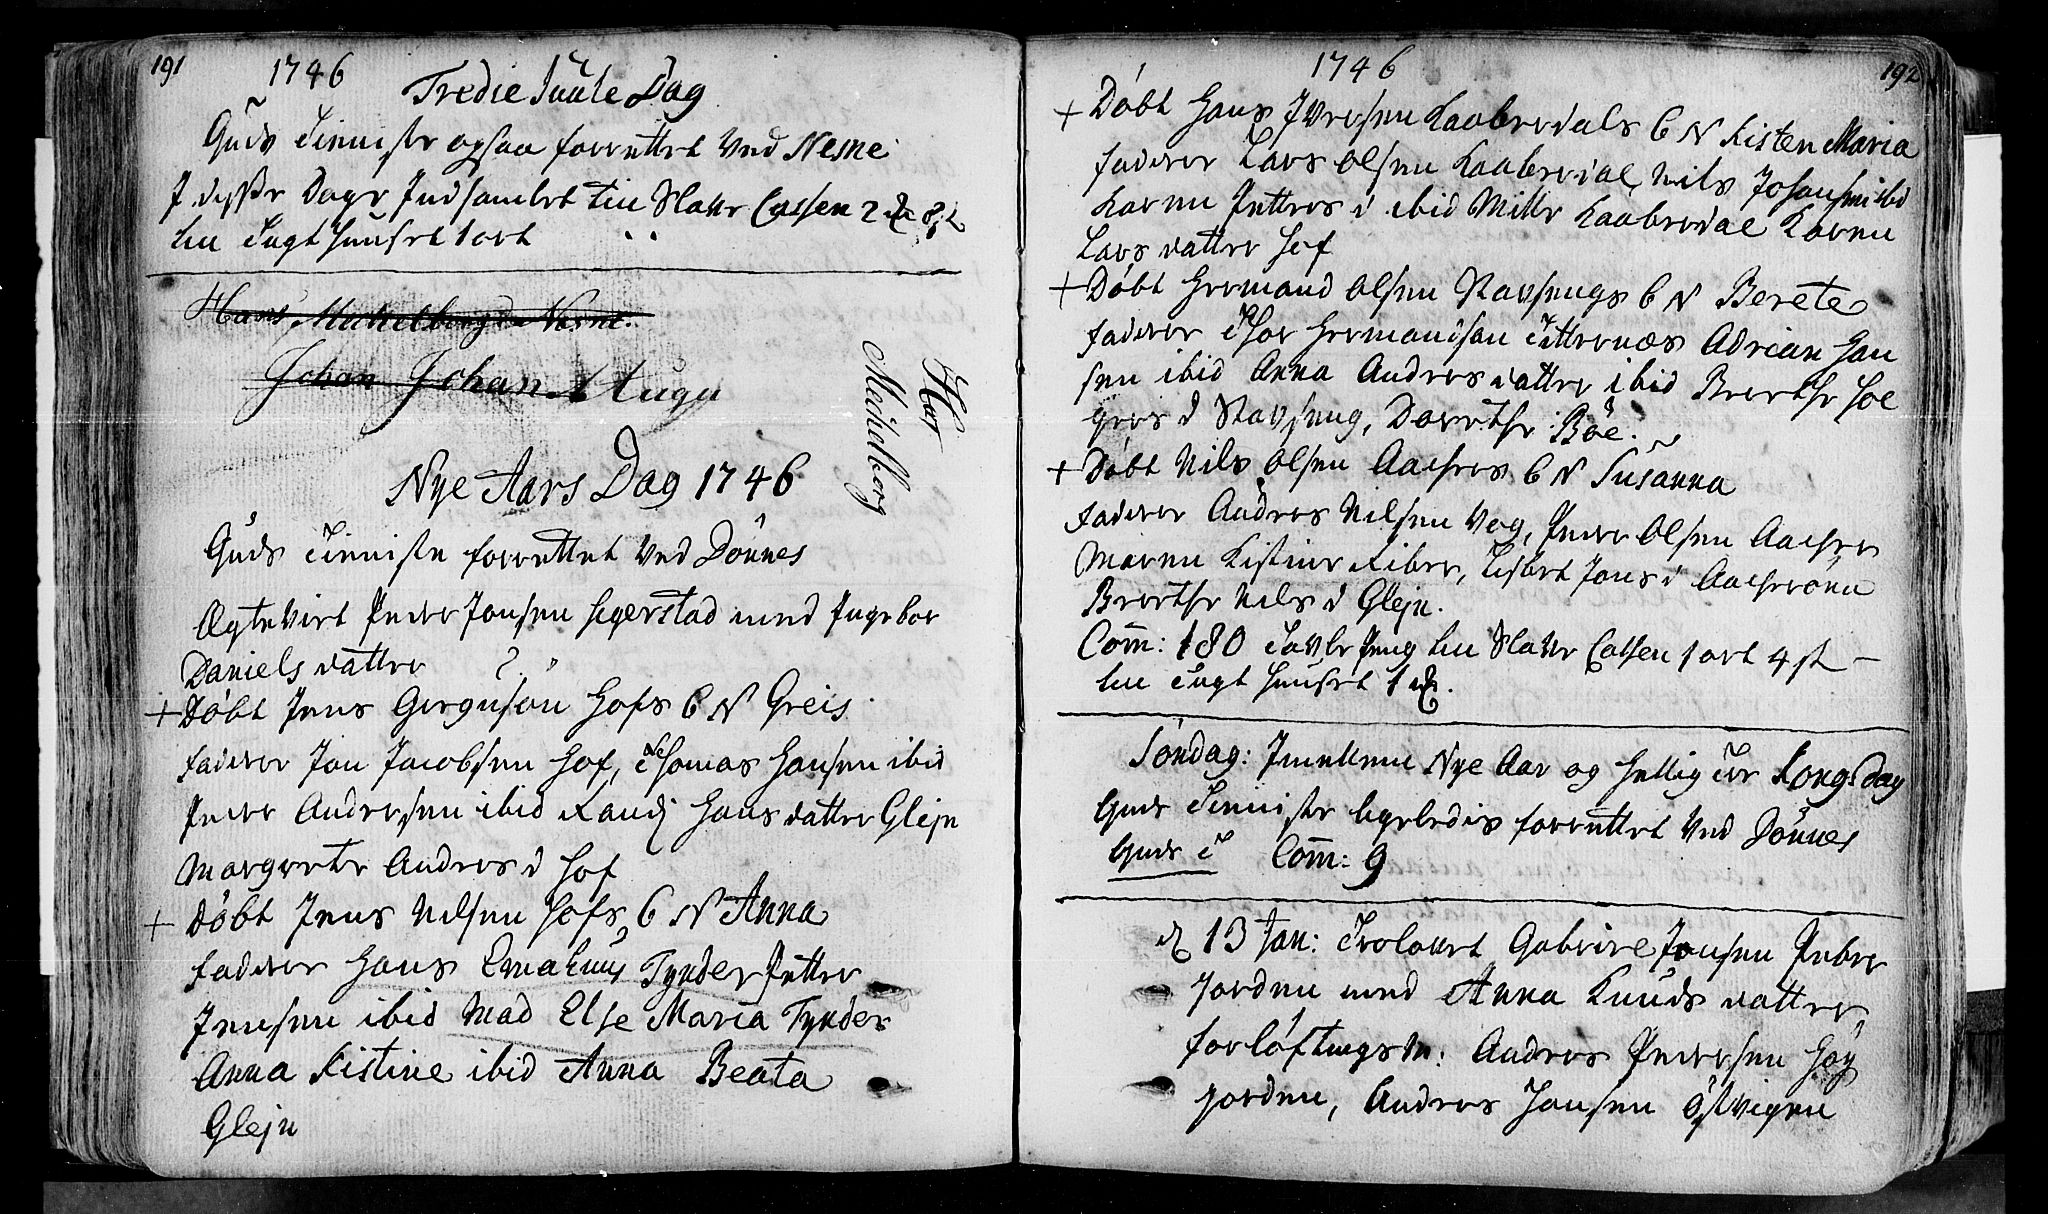 191
1746
Tredie Juule Dag
Guds Tienniste ogsaa forrettet Ved Nesne
J disse Dage Indsamlet till Slavr Cassen 2
till Tugt Huuset 1 ort
Hans Meckelborg Nesne.
Johan Johan
Har
Meckelberg
Nye Aars Dag 1746
Guds Tienniste forrettet Ved Dönnes
Ægteviet Peder Jonsen Segerstad med Ingebor
Daniels datter
+ Döbt Jens Gregusön Hofs C N Greis
fadere Jon Jacobsen Hof, Thomas Hansen ibid
Peder Andersen ibid Randj Hans datter Glejn
Margrete Anders d Hof
+ Döbt Jens Nilsen Hofs C N Anna
fadere Hans Emahuus Tynder Petter
Jensen ibid Mad Else Maria Tynder
Anna Kistine ibid Anna Beata
Glejn
1746
192
+ Döbt Hans Iversen Kaabredals C N Kisten Maria
fadere Lars Olsen Kaabredal, Nils Johansen ibid
Karen Petters d ibid Mille Kaabredal Karen
Lars datter Hof
+ Döbt Hermand Olsen Stavsengs C N Berete
fadere Thor Hermandsen Titternæs Adrian Han
sen ibid Anna Anders datter ibid Brerthe Hol
gers d Stavseng, Dorothe Böe.
+ Döbt Nils Olsen Aachres C N Susanna
fadere Anders Nilsen Vog, Peder Olsen Aacher
Maren Kistine Riber, Lisbet Jons d Aacheröen
Brerthe Nils d Glejn.
Com̄: 180 Tavle Peng till Slavr Cassen 1 ort 4 st
till Tugt Huuset 1
Söndag: Imellem Nye Aar og Hellig Tre Kongs Dag
Guds Tienniste ligeledis forrettet Ved Dönnes
Guds T Com̄: 9
d 13 Jan: Trolovet Gabriel Jonsen Inder
Jorden med Anna Knuds datter
forlöftingsm: Anders Pedersen Höy
jorden, Anders Jonsen Östvigen